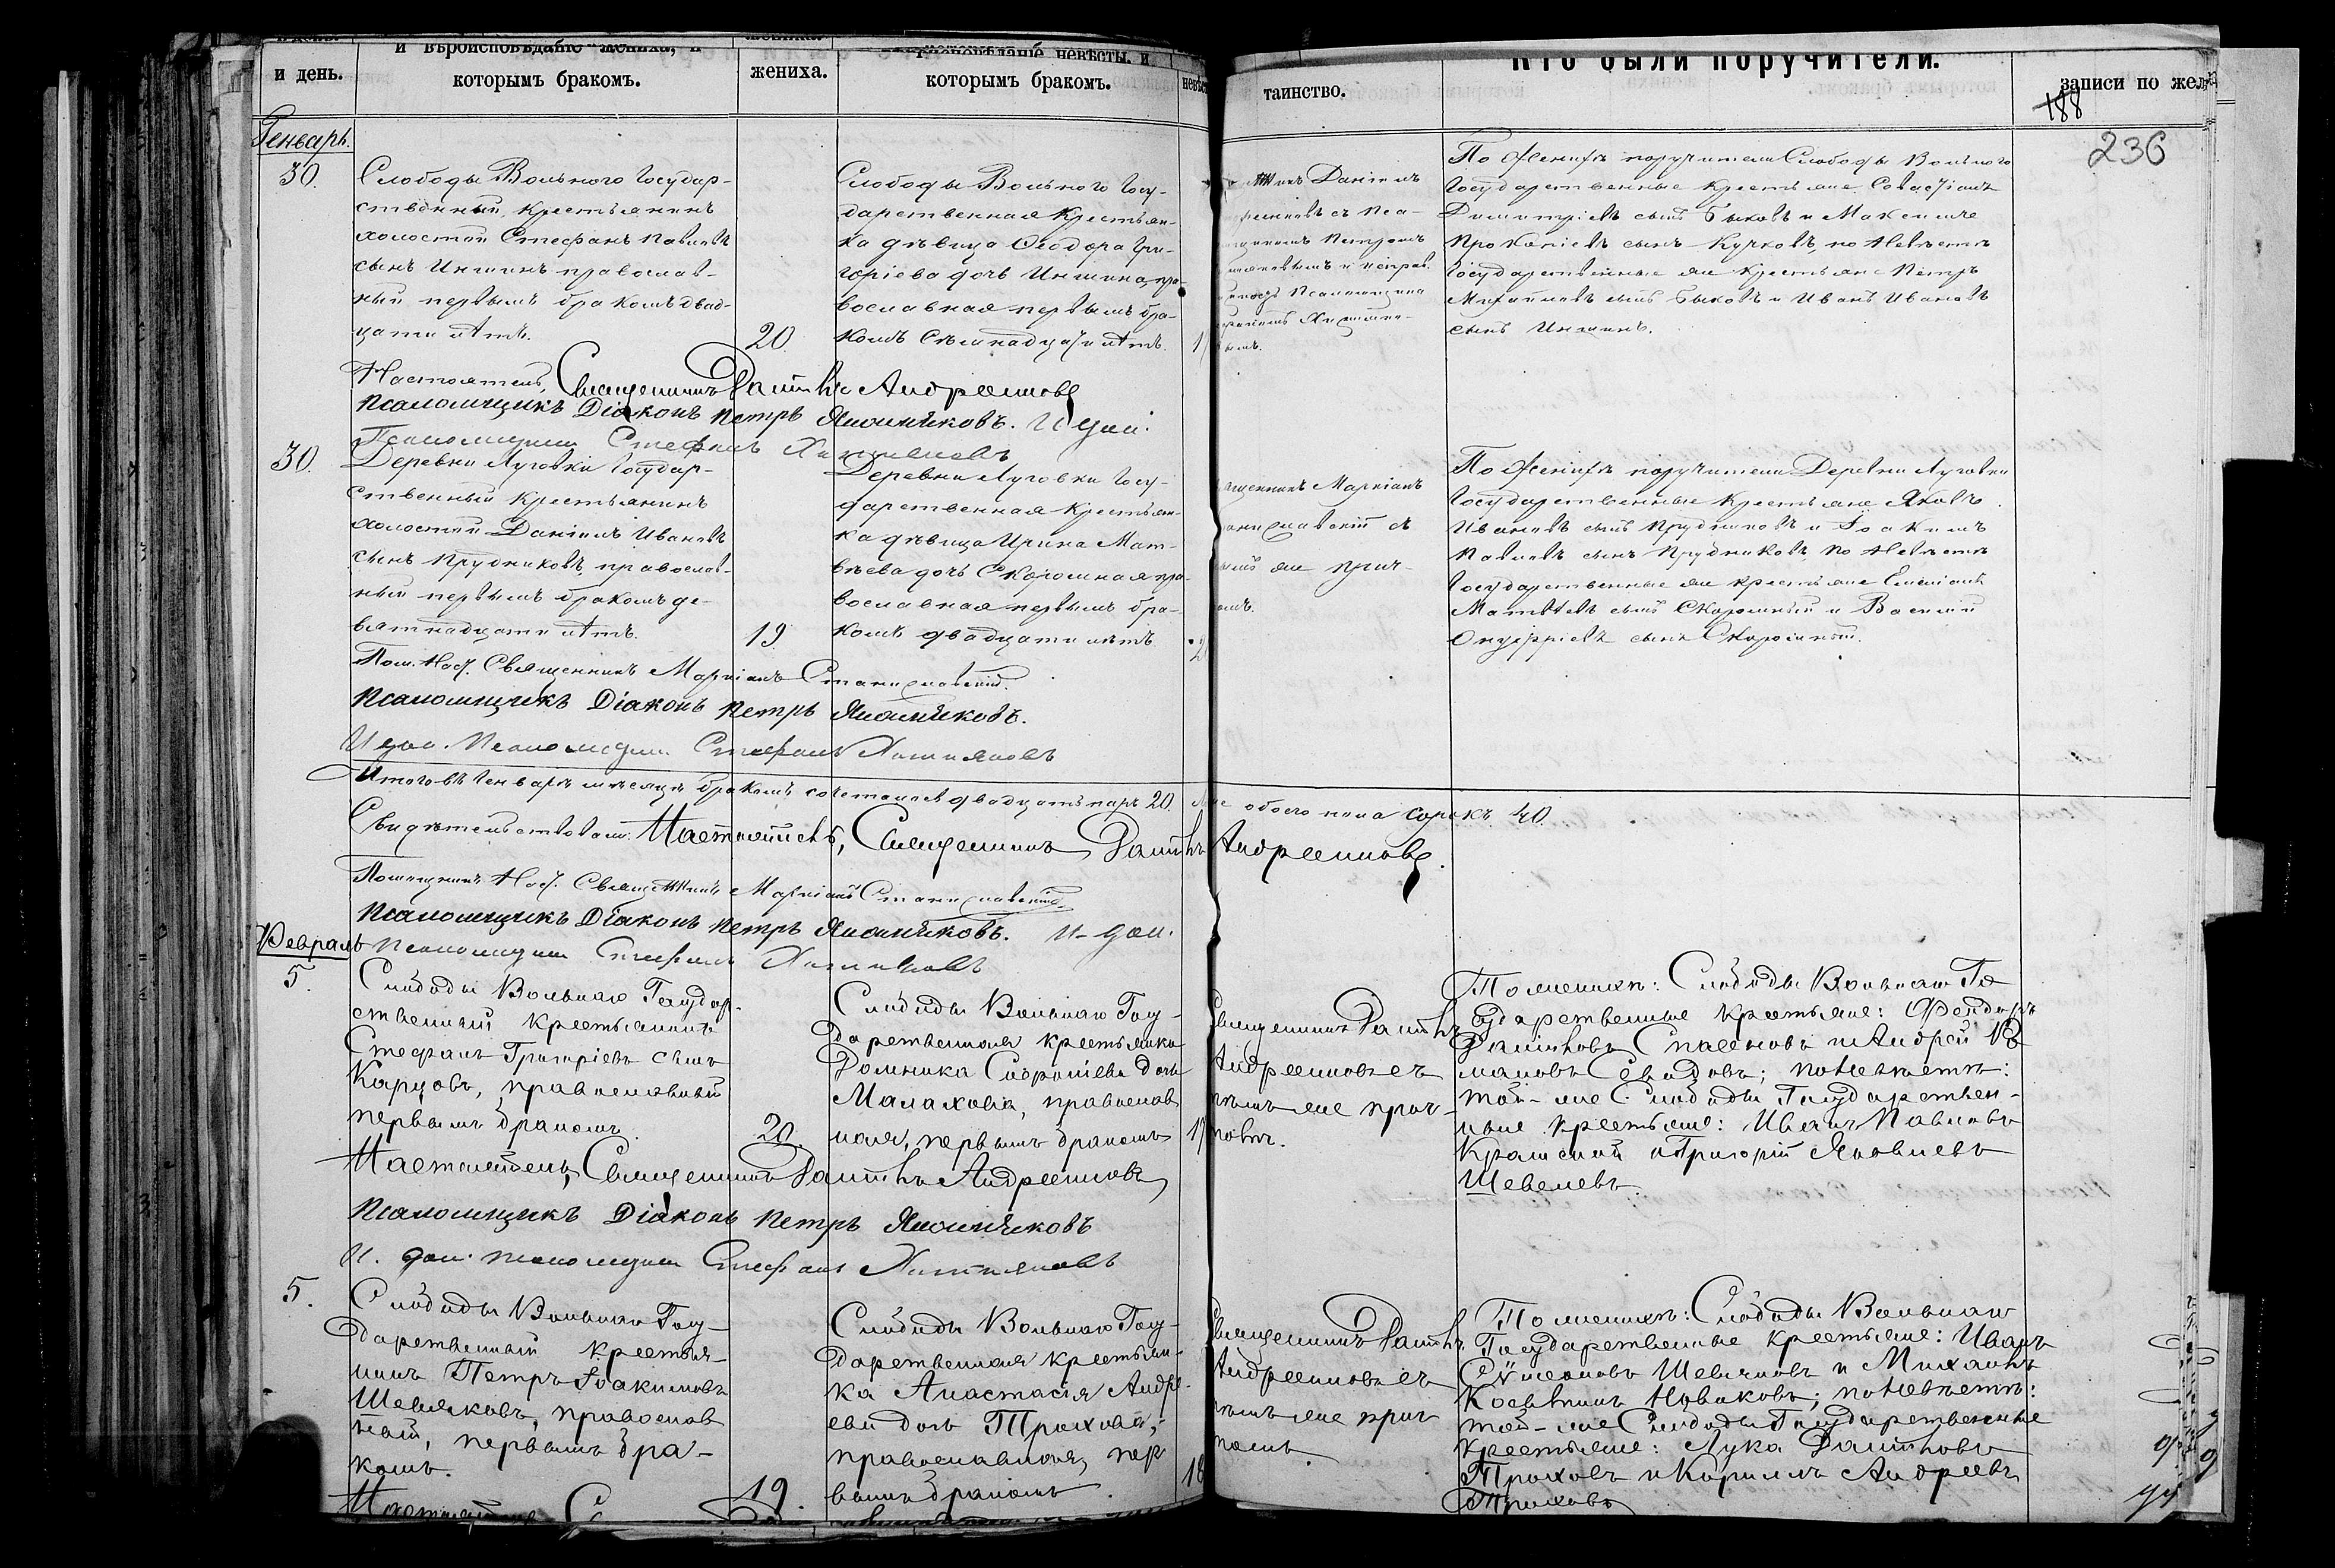 и день.
и вѣроисповѣданіе жениха, и
которымъ бракомъ.
жениха.
исповѣданіе невѣсты, и
которымъ бракомъ.
таинство.
Кто были поручители.
записи по жел
188
236
Генварь.
30.
Слободы Вольного Государ-
ственный крестьянинъ
холостой Стефанъ Павловъ
сынъ Иншинъ православ-
ный первымъ бракомъ двад-
цати лѣтъ.
20.
Слободы Вольного Госу-
дарственная крестьян-
ка дѣвица Ѳеодора Гри-
горіева дочь Иншина пра-
вославная первымъ бра-
комъ Семнадцати лѣтъ.
Даніилъ
съ Пса-
Петромъ
и исправ.
Псаломщика
По Женихѣ поручители Слободы Вольного
Государственные крестьяне Севастіанъ
Димитріевъ сынъ Быковъ и Максимъ
Прокопіевъ сынъ Кучковъ, по Невѣстѣ
Государственные же крестьяне Петръ
Михайловъ сынъ Быковъ и Иванъ Ивановъ
сынъ Иншинъ.
Настоятель, Священникъ Даніилъ Андреенковъ
Псаломщикъ Діаконъ Петръ И. дол.
Псаломщика Стефанъ
30.
Деревни Луговки Государ-
ственный крестьянинъ
холостой Даніилъ Ивановъ
сынъ Прудниковъ, православ-
ный первымъ бракомъ де-
вятнадцати лѣтъ.
19.
Деревни Луговки Госу-
дарственная крестьян-
ка дѣвица Ирина Мат-
вѣева дочь Скоромная пра-
вославная первымъ бра-
комъ двадцати лѣтъ.
Маркіанъ
съ
же прич-
По Женихѣ поручители Деревни Луговки
Государственные крестьяне Яковъ
Ивановъ сынъ Прудниковъ и Іоакимъ
Павловъ сынъ Прудниковъ, по Невѣстѣ
Государственные же крестьяне Емеліанъ
Матвѣевъ сынъ Скоромный и Василій
Онуфріевъ сынъ Скоромный.
Пом. Наст. Священникъ Маркіанъ Станиславскій.
Псаломщикъ Діаконъ Петръ
И. дол. Псаломщика Стефанъ
Итого въ Генварѣ мѣсяцѣ бракомъ сочеталось двадцать паръ 20. обоего пола сорокъ 40.
Свидѣтельствовали: Настоятель, Священникъ Даніилъ Андреенковъ.
Помощникъ Наст. Священникъ Маркіанъ Станиславскій
Псаломщикъ Діаконъ Петръ И. дол.
Февраль
Псаломщика Стефанъ
5.
Слободы Вольнаго Государ-
ственный крестьянинъ
Стефанъ Григоріевъ сынъ
Карцовъ, православный
первымъ бракомъ.
20.
Слободы Вольнаго Госу-
дарственная крестьянка
Домника Софроніева дочь
Малахова, православ
ная, первымъ бракомъ
17
Священникъ Даніилъ
Андреенковъ съ
тѣмъ же прич-
томъ.
По женихѣ: Слободы Вольнаго Го
сударственные крестьяне: Ѳеодоръ
Даніиловъ Спасеновъ и Андрей Ро
мановъ; по невѣстѣ:
той-же Слободы Государствен-
ные крестьяне: Иванъ Павловъ
и Григорій Яковлевъ
Шевелевъ.
Настоятель, Священникъ Даніилъ Андреенковъ
Псаломщикъ Діаконъ Петръ
И. дол. Псаломщика Стефанъ
5.
Слободы Вольнаго Госу-
дарственный крестья-
нинъ Петръ Іоакимовъ
Шевляковъ, православ
ный, первымъ бра-
комъ.
19.
Слободы Вольнаго Госу-
дарственная крестьян-
ка Анастасія Андре-
ева дочь Трохова,
православная, пер
вымъ бракомъ.
18
Священникъ Даніилъ
Андреенковъ съ
тѣмъ же прич
томъ
По женихѣ: Слободы Вольнаго
Государственные крестьяне: Иванъ
Сѵмеоновъ Шевляковъ и Михаилъ
Новиковъ; по невѣстѣ:
той-же Слободы Государственные
крестьяне: Лука Даніиловъ
Троховъ и Кириллъ Андреевъ
Троховъ